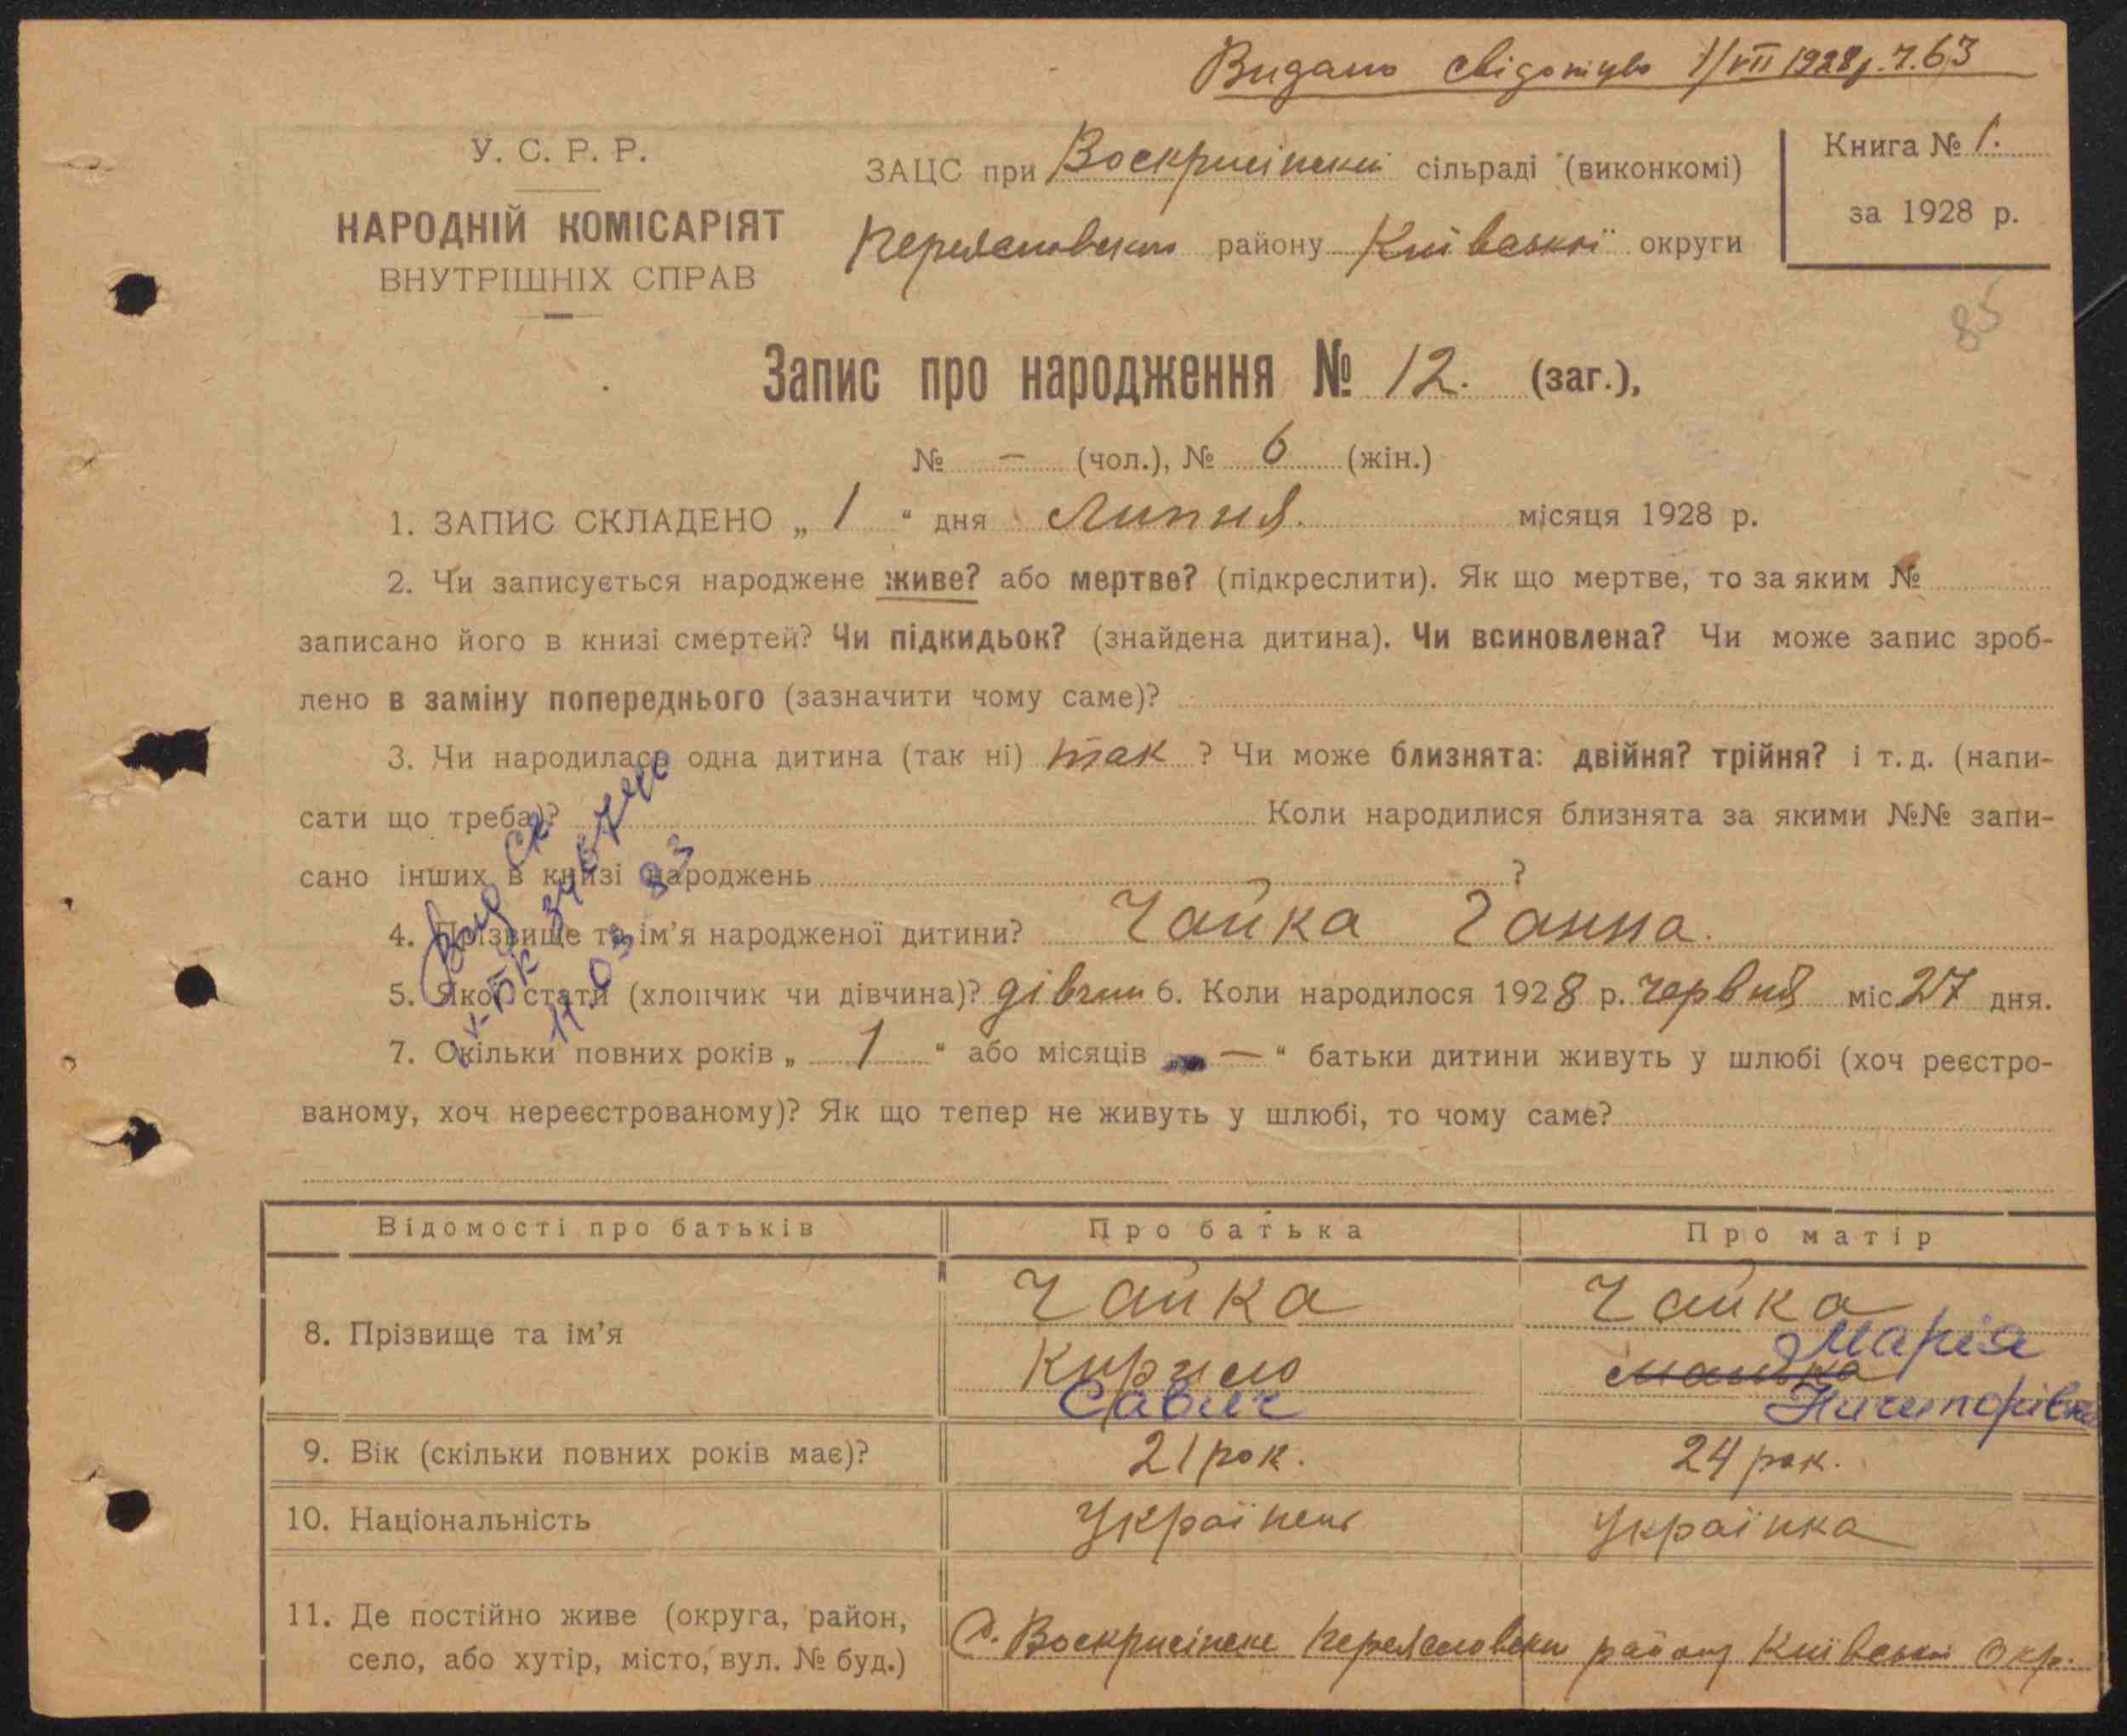 Видано свідоцтво 1/VII 1928р. ч. 63
У. С. Р. Р.
НАРОДНІЙ КОМІСАРІЯТ
ВНУТРІШНІХ СПРАВ
ЗАЦС при Воскрисінскій сільраді (виконкомі)
Переяславского району Київської округи
Книга № 1.
за 1928 р.
85
Запис про народження № 12. (заг.),
№ — (чол.), № 6 (жін.)
1. ЗАПИС СКЛАДЕНО „ 1 “ дня Липня. місяця 1928 р.
2. Чи записується народжене живе? або мертве? (підкреслити). Як що мертве, то за яким №
записано його в книзі смертей? Чи підкидьок? (знайдена дитина). Чи всиновлена? Чи може запис зроб-
лено в заміну попереднього (зазначити чому саме)?
3. Чи народилась одна дитина (так ні) так ? Чи може близнята: двійня? трійня? і т. д. (напи-
сати що треба)? Коли народилися близнята за якими №№ запи-
сано інших в книзі народжень ?
4. Прізвище та ім’я народженої дитини? Чайка Ганна.
5. Якої стати (хлопчик чи дівчина)? дівчин 6. Коли народилося 1928 р. червня міс. 27 дня.
7. Скільки повних років „ 1 “ або місяців — “ батьки дитини живуть у шлюбі (хоч реєстро-
ваному, хоч нереєстрованому)? Як що тепер не живуть у шлюбі, то чому саме?
11.03.83
Відомості про батьків Про батька Про матір
8. Прізвище та ім’я
Чайка Чайка
Кирило Манька Марія
Савич Ничипорівна
9. Вік (скільки повних років має)? 21 рок. 24 рок.
10. Національність Українець Українка
11. Де постійно живе (округа, район,
село, або хутір, місто, вул. № буд.)
с. Воскрисінске Переяславски району Київської Окр.